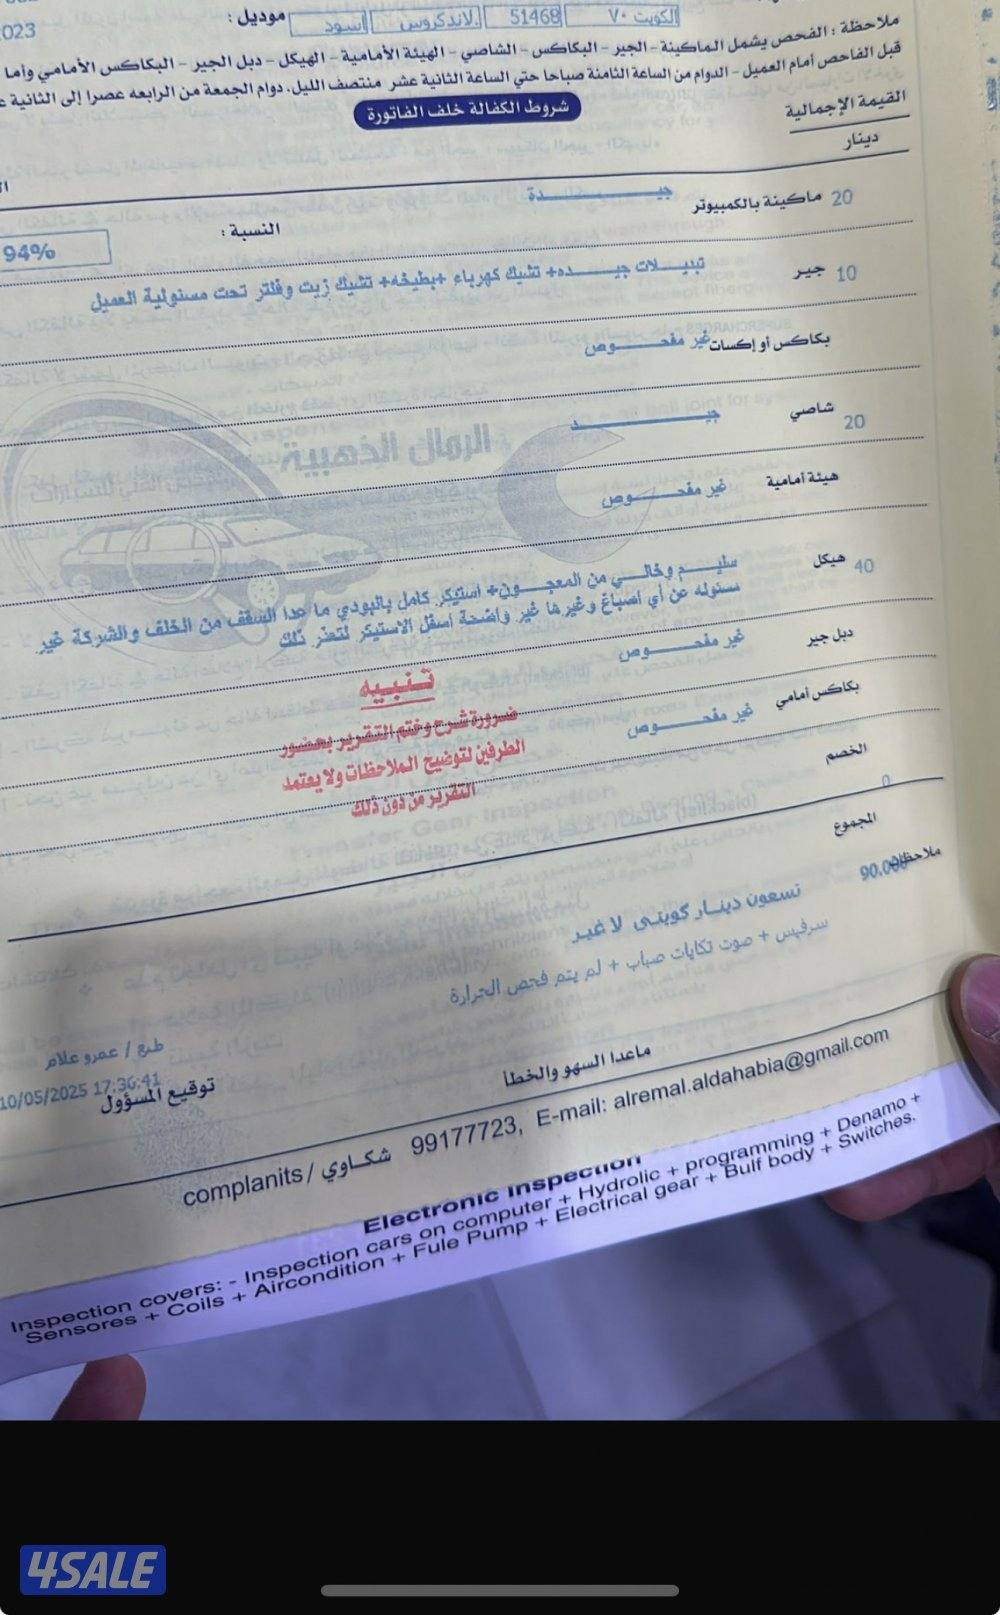 2023
موديل :
أسود
لاندكروس
51468
الكويت ٧٠
ملاحظة : الفحص يشمل الماكينة - الجير - البكاكس - الشاصي - الهيئة الأمامية - الهيكل - دبل الجير - البكاكس الأمامي وأما
قبل الفاحص أمام العميل - الدوام من الساعة الثامنة صباحا حتي الساعة الثانية عشر منتصف الليل. دوام الجمعة من الرابعه عصرا إلى الثانية
شروط الكفالة خلف الفاتورة
القيمة الإجمالية
دينار
20 ماكينة بالكمبيوتر جيــــدة
النسبة :
94%
10 جير تبديــلات جيــــده+ تشيك كهرباء +بطيخه+ تشيك زيت وفلتر تحت مسئولية العميل
بكاكس أو إكسات غير مفحـــوص
20 شاصي جيــــــد
الرمال الذهبية
هيئة أمامية غير مفحـــوص
40 هيكل سليــم وخالــي من المعجــون+ استيكر كامل بالبودي ما عدا السقف من الخلف والشركة غير
مسئوله عن أي أصباغ وغيرها غير واضحة أسفل الاستيكر لتعذر ذلك
دبل جير غير مفحـــوص
بكاكس أمامي غير مفحـــوص
تنبيه
ضرورة شرح وختم التقرير بحضور
الطرفين لتوضيح الملاحظات ولا يعتمد
التقرير من دون ذلك
الخصم
0
المجموع
90.000
ملاحظات
تسعون دينار كويتى لا غير
سرفيس + صوت تكايات صباب + لم يتم فحص الحرارة
طبع / عمرو علام
10/05/2025 17:36:41
توقيع المسؤول
ماعدا السهو والخطأ
complanits / شكاوي 99177723, E-mail: alremal.aldahabia@gmail.com
Electronic Inspection
Inspection covers: - Inspection cars on computer + Hydrolic + programming + Denamo +
Sensores + Coils + Aircondition + Fule Pump + Electrical gear + Bulf body + Switches.
4SALE